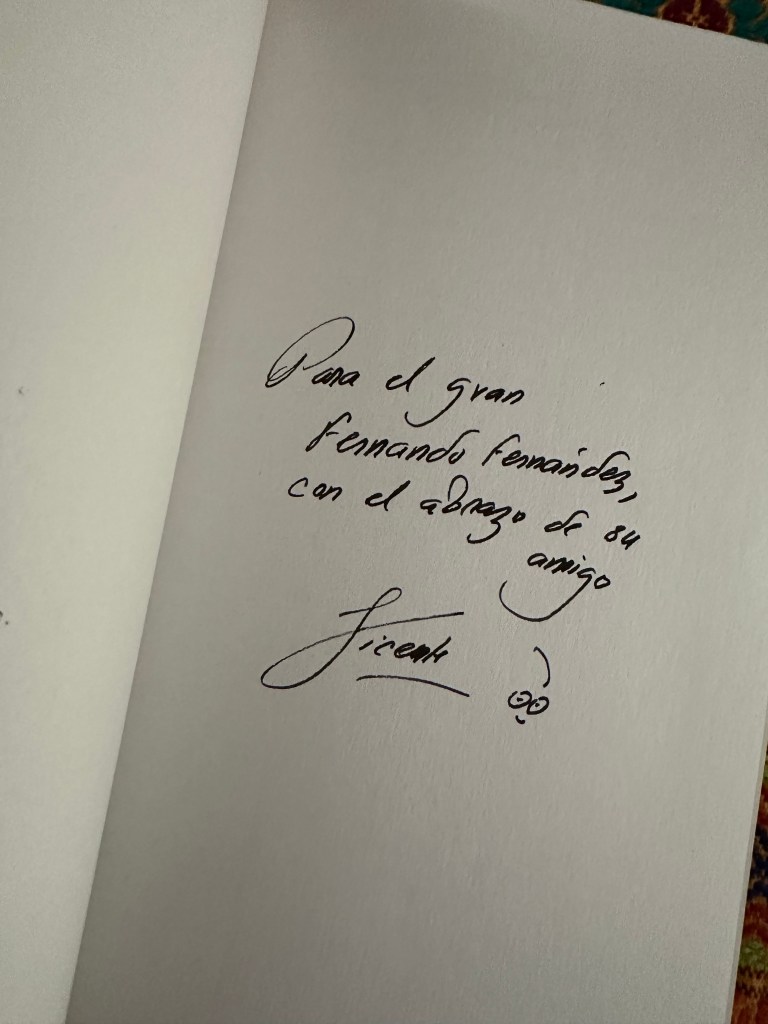 Para el gran
Fernando Fernández,
con el abrazo de su
amigo
Vicente